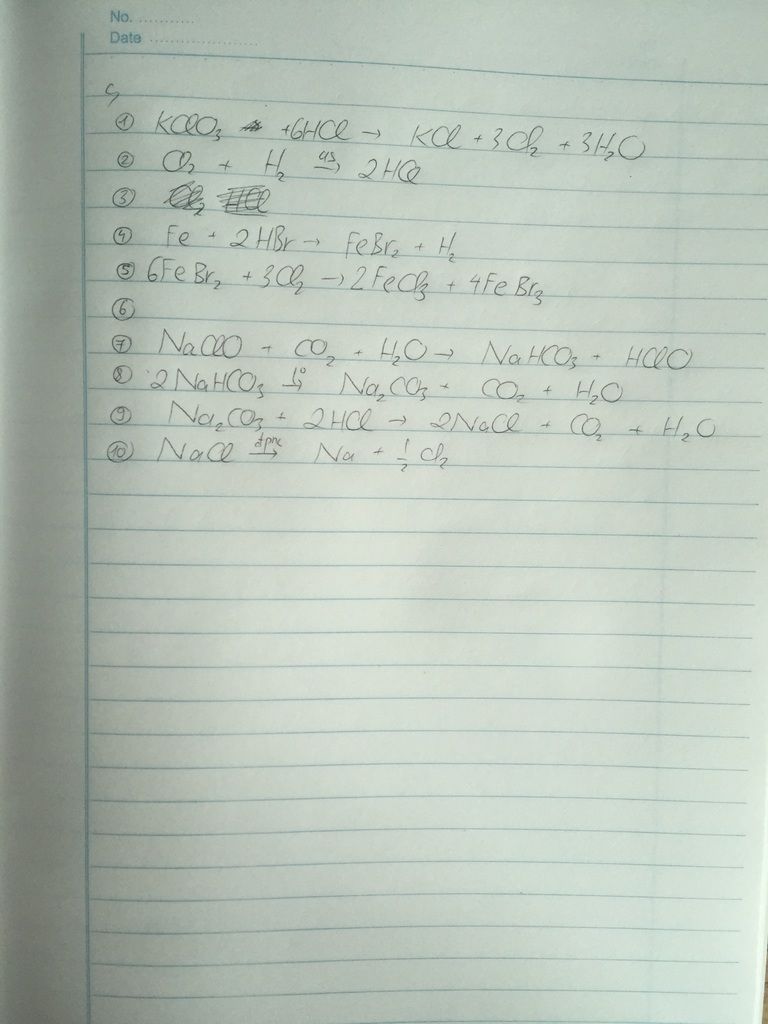 No. ...........
Date ......................
c,
① KClO₃ + 6HCl → KCl + 3Cl₂ + 3H₂O
② Cl₂ + H₂ as→ 2HCl
③
④ Fe + 2HBr → FeBr₂ + H₂
⑤ 6FeBr₂ + 3Cl₂ → 2FeCl₃ + 4FeBr₃
⑥
⑦ NaClO + CO₂ + H₂O → NaHCO₃ + HClO
⑧ 2NaHCO₃ t°→ Na₂CO₃ + CO₂ + H₂O
⑨ Na₂CO₃ + 2HCl → 2NaCl + CO₂ + H₂O
⑩ NaCl đpnc→ Na + ½ Cl₂